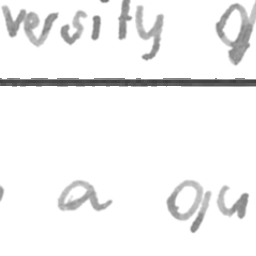 versity
a qu